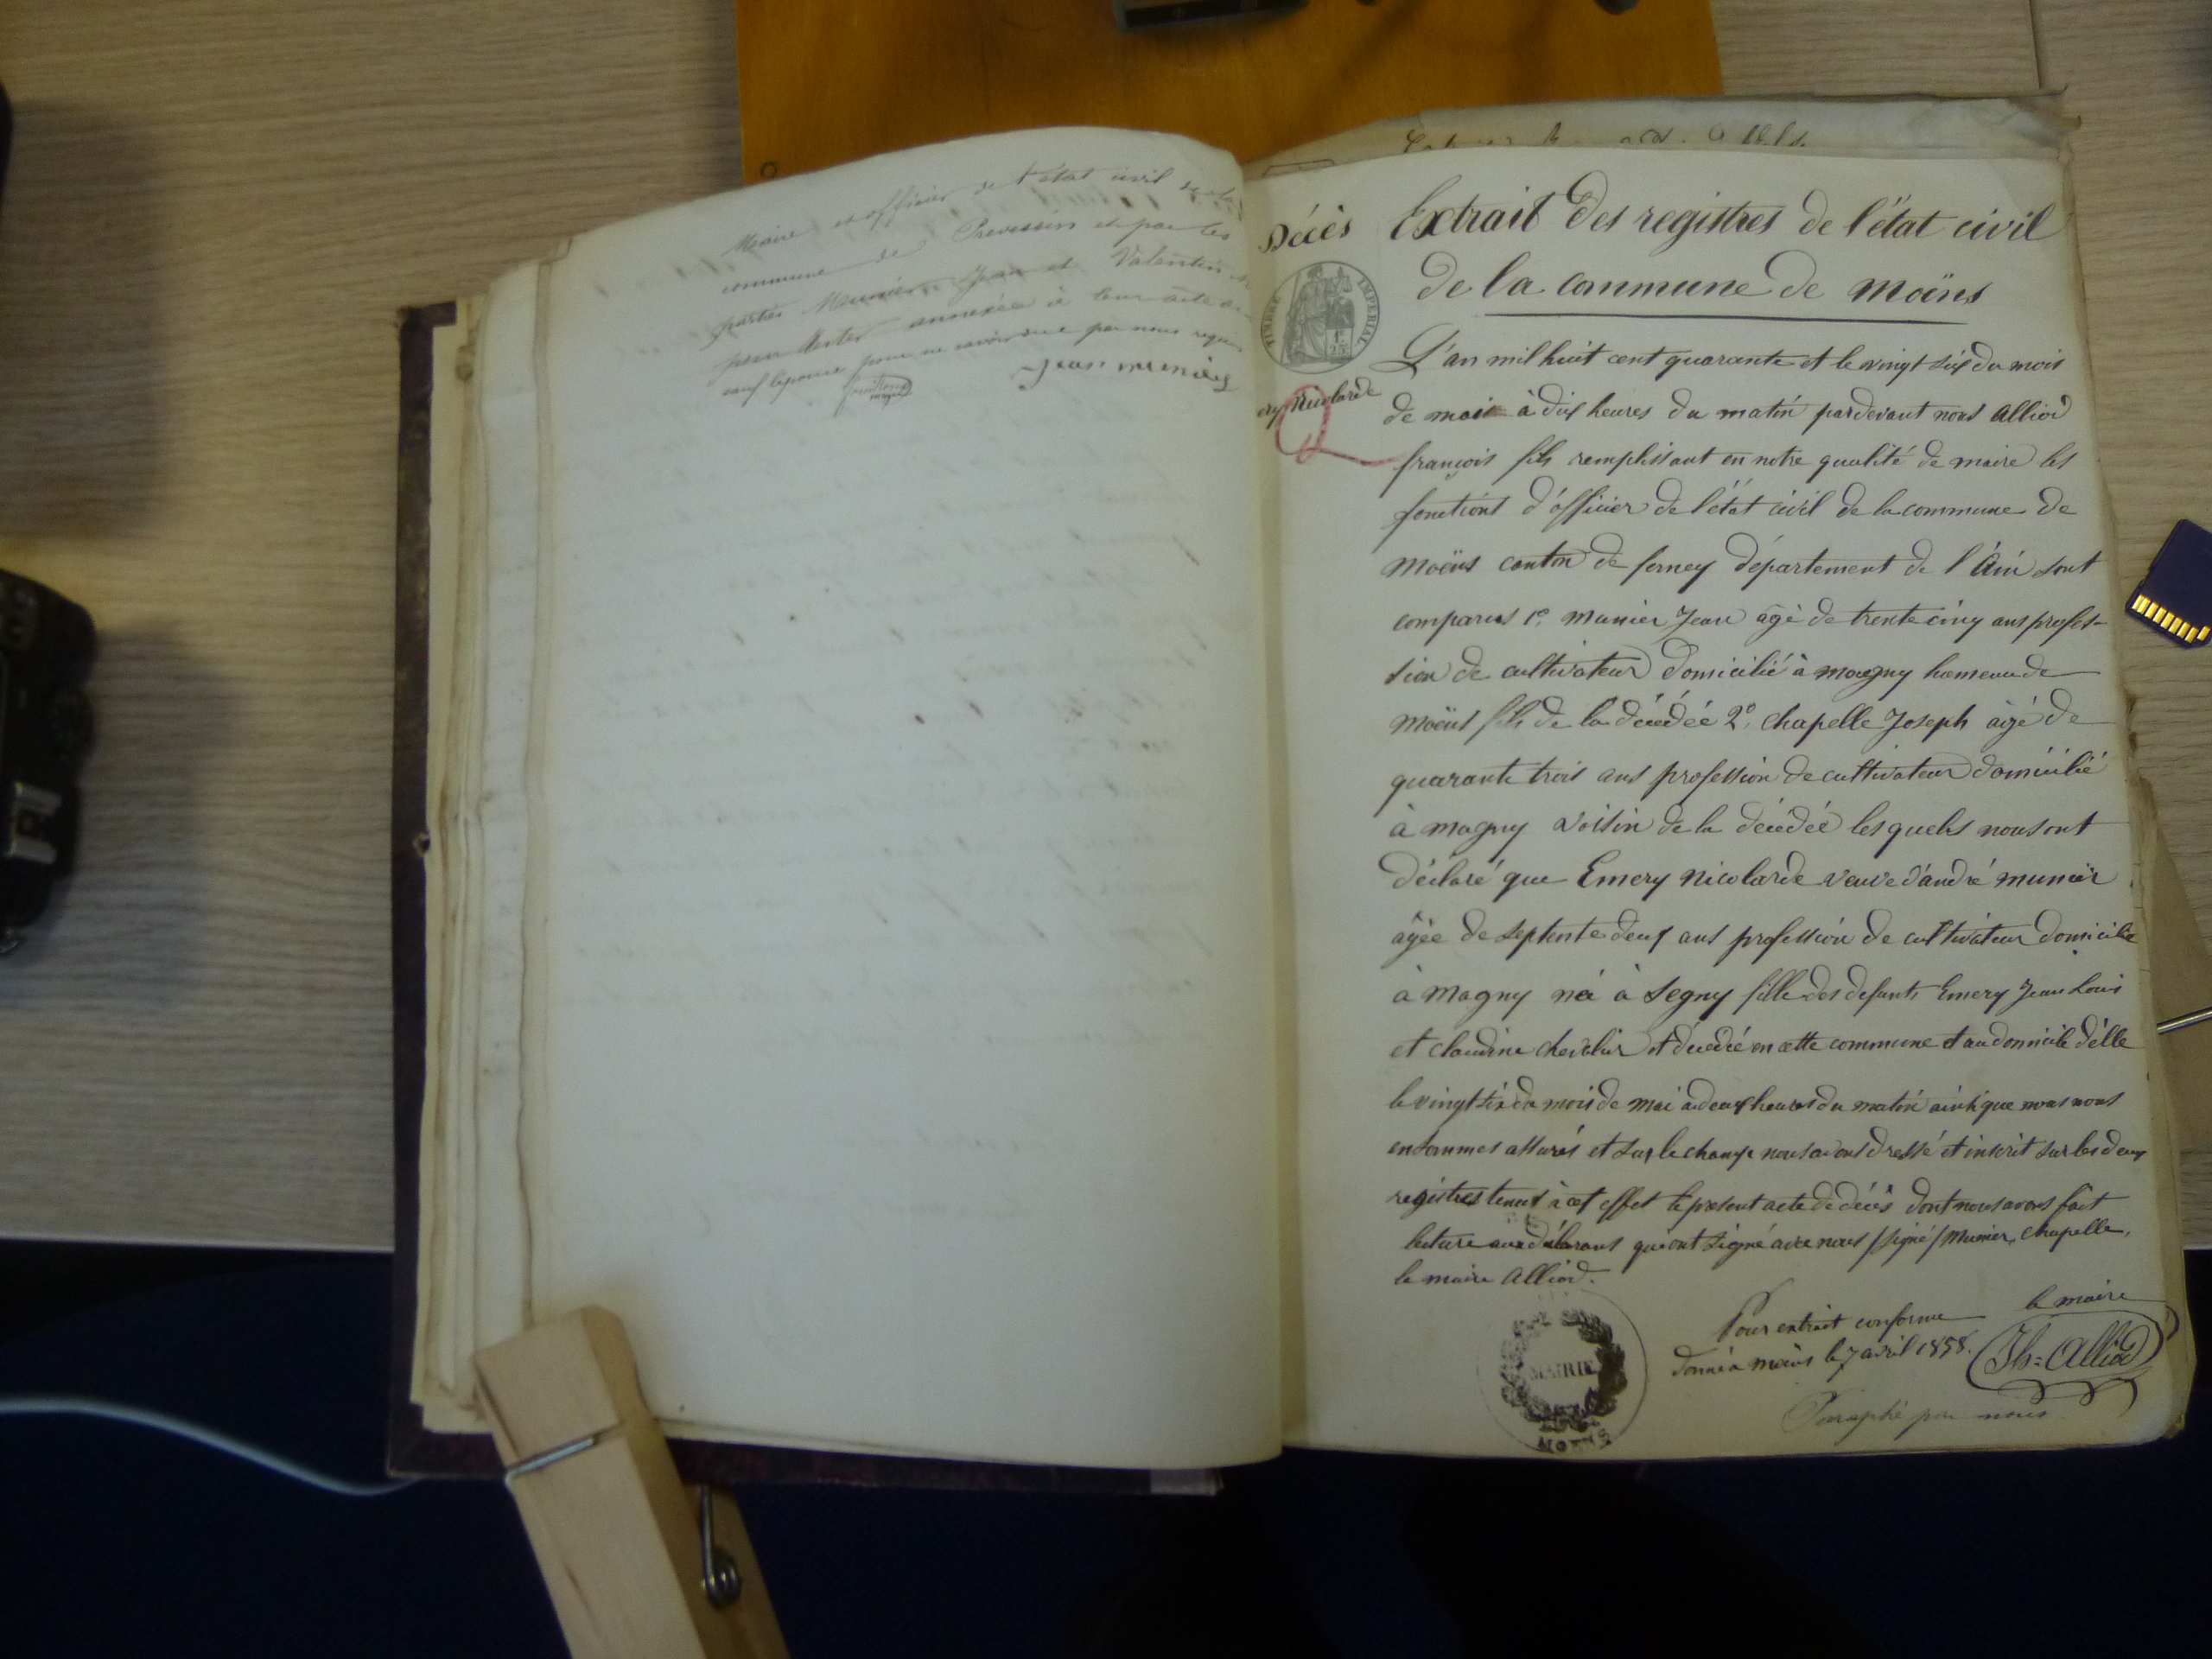 Maire et officier de l'état civil de la
commune de Prevessin et par les
parties Munier Jean et Valentin
pour rester annexée à leur acte de
sauf l'épouse pour ne savoir de par nous requise
Jean munier
Décès
Extrait des registres de l'état civil
de la commune de moëns
TIMBRE IMPERIAL
ery Nicolarde
L'an mil huit cent quarante et le vingt six du mois
de mai à dix heures du matin pardevant nous Alliod
françois fils remplissant en notre qualité de maire les
fonctions d'officier de l'état civil de la commune de
moëns canton de ferney département de l'Ain sont
comparus 1º. munier Jean agé de trente cinq ans profes-
sion de cultivateur domicilié à magny hameau de
moëns fils de la décédée 2º. chapelle Joseph âgé de
quarante trois ans profession de cultivateur domicilié
à magny voisin de la décédée lesquels nous ont
déclaré que Emery nicolarde veuve d'andré munier
âgée de septente deux ans profession de cultivateur domicilie
à magny née à Segny fille des defunts Emery Jean Louis
et claudine chevalier est décédé en cette commune et au domicile d'elle
le vingt six du mois de mai à deux heures du matin ainsi que nous nous
en sommes assurés et sur le champ nous avons dressé et inscrit sur les deux
registres tenus à cet effet le present acte de décès dont nous avons fait
lecture aux déclarans qui ont signé avec nous /signé/ Munier, Chapelle,
le maire Alliod.
Pour extrait conforme
le maire
donné à moëns le 7 avril 1858.
Jh= Alliod
MAIRIE
MOËNS
Paraphé par nous